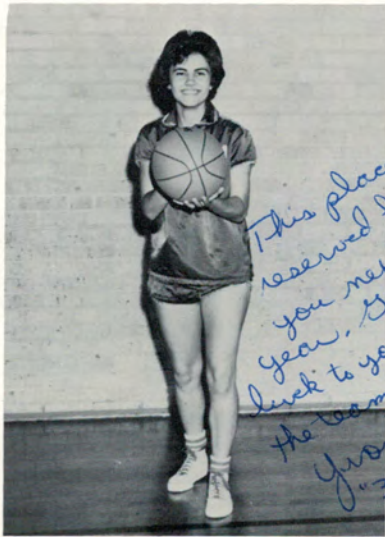 This plac
reserved
you ne
year. G
luck to yo
the team